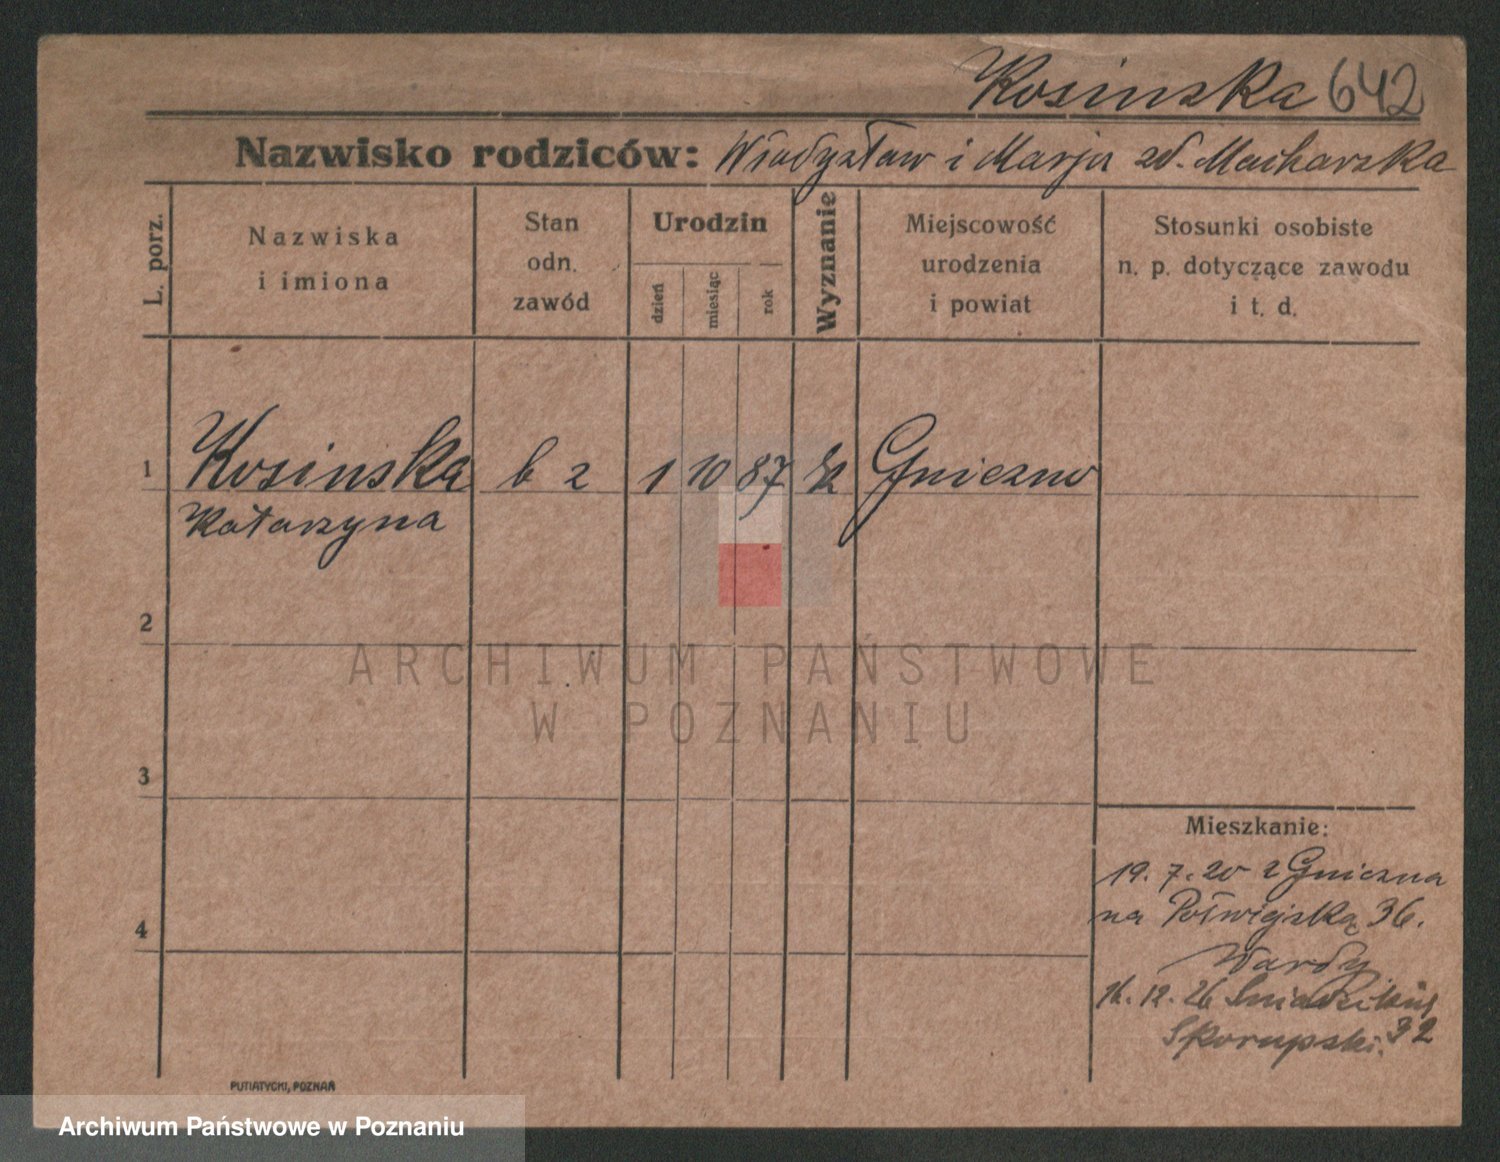 Kosinska 642
Nazwisko rodziców: Władysław i Marja zd. Macharska
L. porz.
Nazwiska
i imiona
Stan
odn.
zawód
Urodzin
dzień
miesiąc
rok
Wyznanie
Miejscowość
urodzenia
i powiat
Stosunki osobiste
n. p. dotyczące zawodu
i t. d.
1 Kosinska b z 1 10 87 Gniezno
Katarzyna
2
3
4
ARCHIWUM PAŃSTWOWE
W POZNANIU
Mieszkanie:
19. 7. 20 z Gniezna
na Półwiejską 36.
Wardy
16. 12. 26
Skorupski. 32
PUTIATYCKI, POZNAŃ
Archiwum Państwowe w Poznaniu